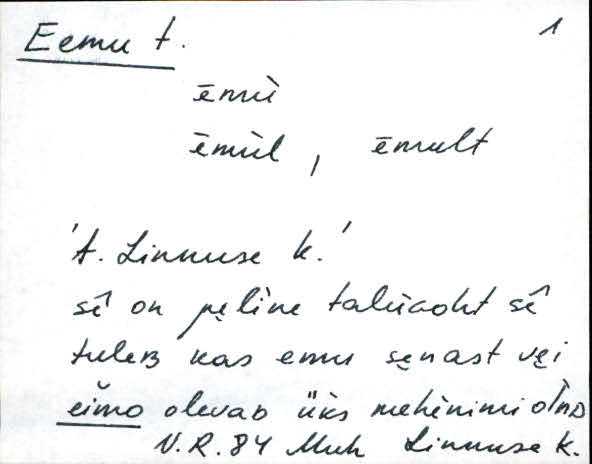 Eemu t. 1
ēmù
ēmùl, ēmult
't. Linnuse k.'
sȇ on pęlìne talùaoht sȇ
tuleʙ kas emu sęnast vęi
eĭmo olevaᴅ üks mehènimi olnᴅ
V.R. 84 Muh Linnuse k.